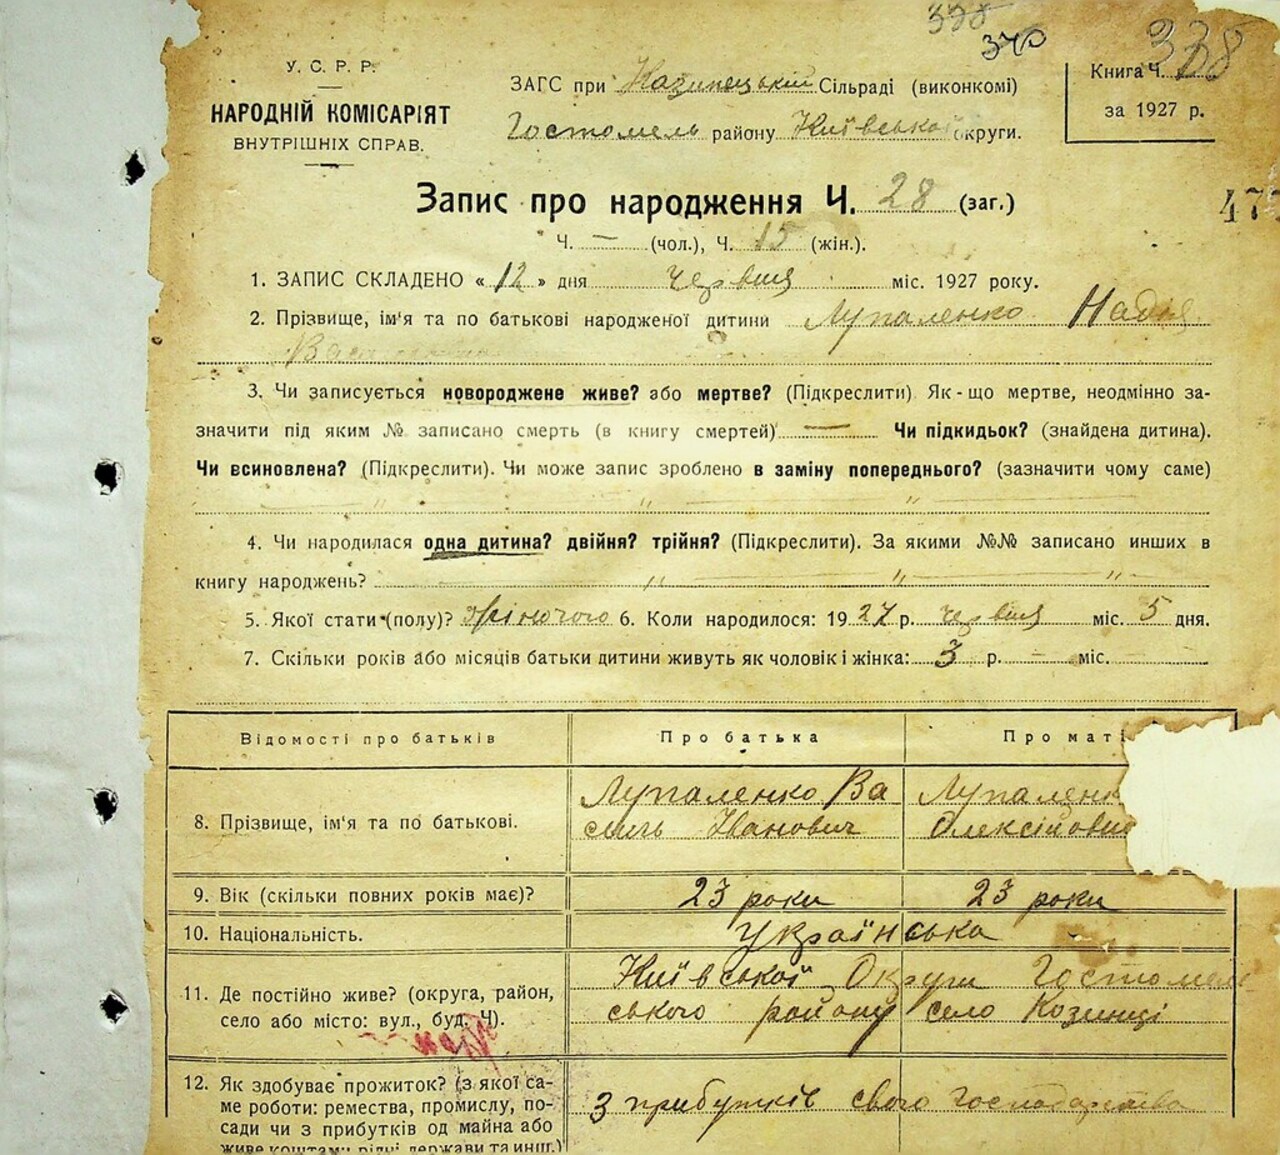 338
340
338
У. С. Р. Р.
НАРОДНІЙ КОМІСАРІЯТ
ВНУТРІШНІХ СПРАВ.
ЗАГС при Козинецькій Сільраді (виконкомі)
Гостомель району Київської округи.
Книга Ч.
за 1927 р.
Запис про народження Ч. 28 (заг.)
47
Ч. — (чол.), Ч. 15 (жін.).
1. ЗАПИС СКЛАДЕНО « 12 » дня червця міс. 1927 року.
2. Прізвище, ім'я та по батькові народженої дитини Лупаленко Надія
3. Чи записується новороджене живе? або мертве? (Підкреслити) Як-що мертве, неодмінно за-
значити під яким № записано смерть (в книгу смертей) — Чи підкидьок? (знайдена дитина).
Чи всиновлена? (Підкреслити). Чи може запис зроблено в заміну попереднього? (зазначити чому саме)
" " "
4. Чи народилася одна дитина? двійня? трійня? (Підкреслити). За якими №№ записано инших в
книгу народжень? " " "
5. Якої стати (полу)? жіночого 6. Коли народилося: 1927 р. червця міс. 5 дня.
7. Скільки років або місяців батьки дитини живуть як чоловік і жінка: 3 р. — міс. —
Відомості про батьків Про батька Про маті
8. Прізвище, ім'я та по батькові. Лупаленко Ва Лупаленк
силь Іванович Олексійовн
9. Вік (скільки повних років має)? 23 роки 23 роки
10. Національність. Українська
11. Де постійно живе? (округа, район, Київської Округи Гостомель
село або місто: вул., буд. Ч). ського району село Козинці
12. Як здобуває прожиток? (з якої са-
ме роботи: ремества, промислу, по- З прибутків свого господарства
сади чи з прибутків од майна або
живе коштами рідні, держави та инш.)